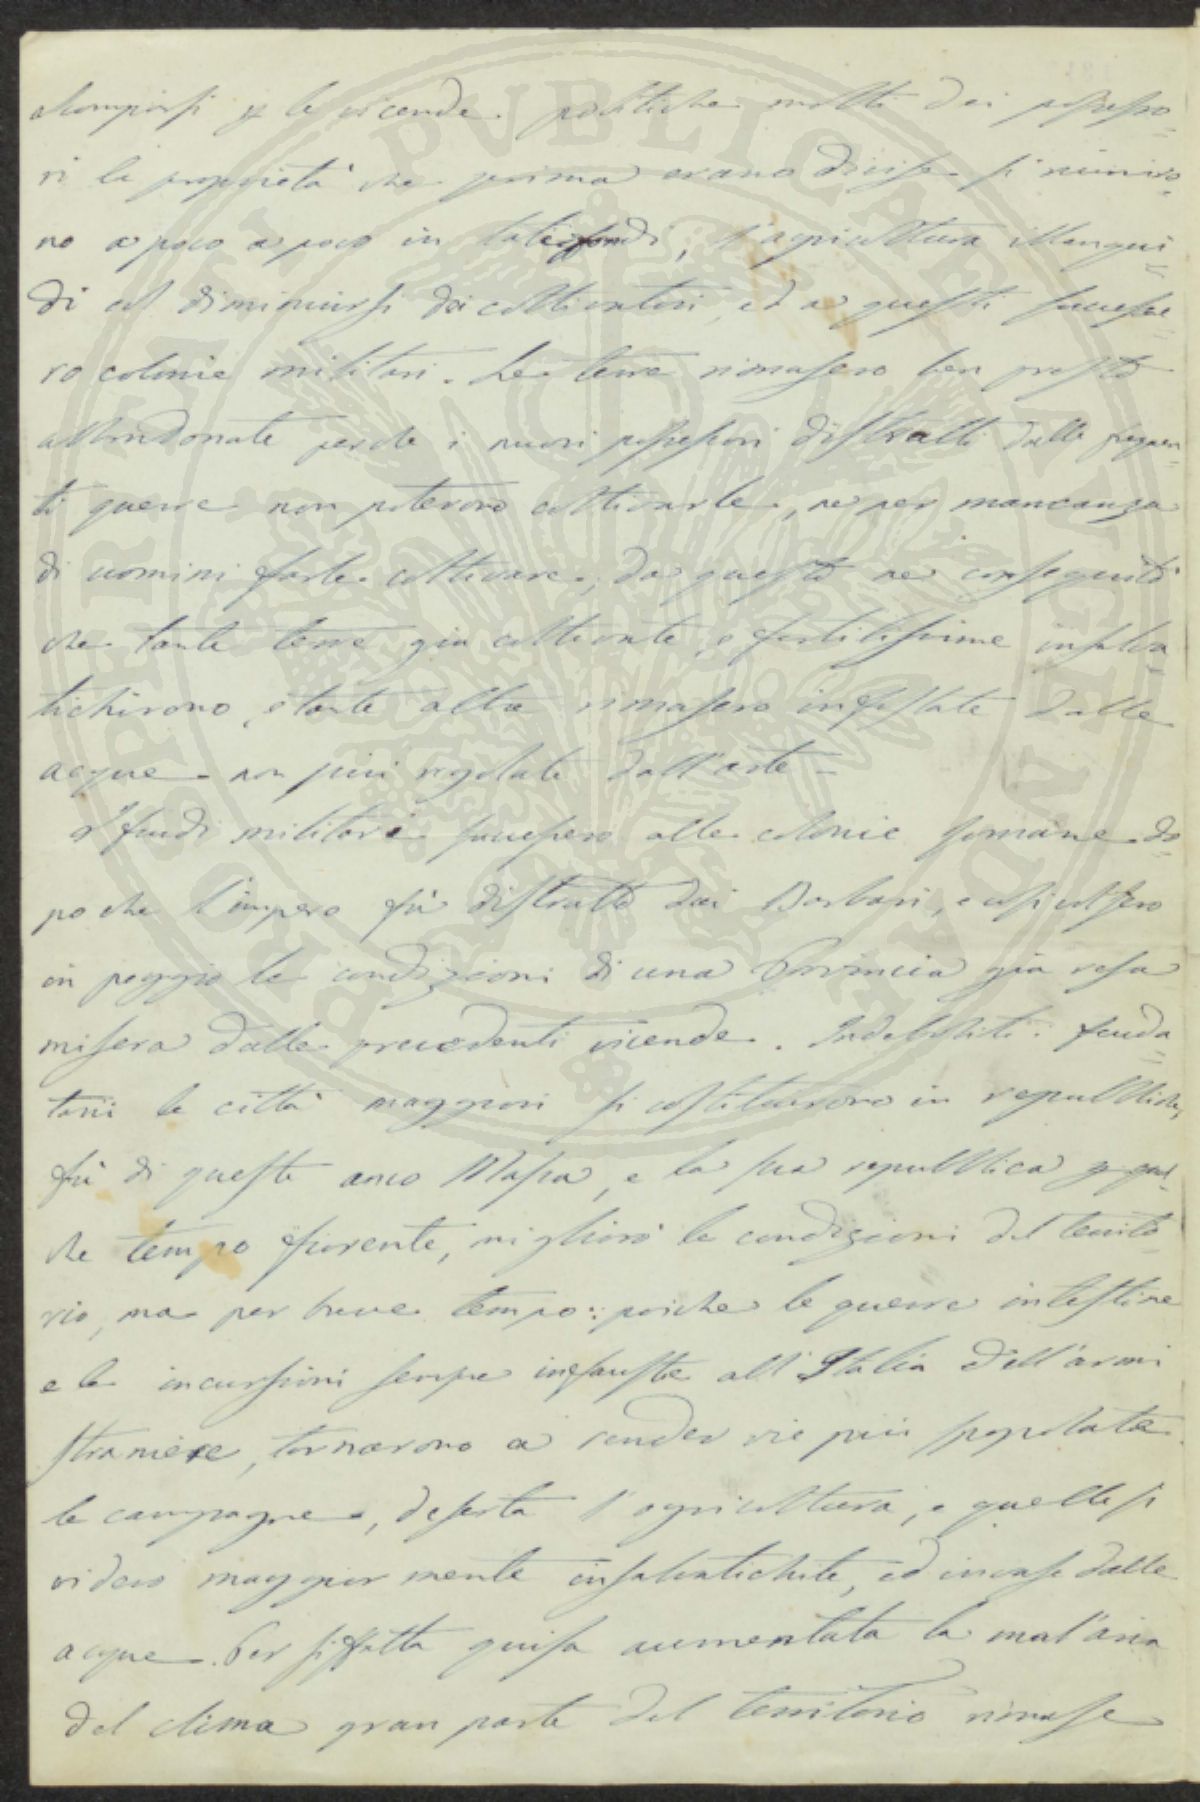 stompersi p le vicende politiche molti dei possesso-
ri le proprietà che prima erano divise si riuniro-
no a poco a poco in latifondi, l'agricoltura illangui-
dì col diminuirsi dei coltivatori, ed a questi successe-
ro colonie militari. Le terre rimasero ben presto
abbandonate perche i nuovi possessori distratti dalle frequen-
ti guerre non poterono coltivarle, ne per mancanza
di uomini farle coltivare, da questo ne conseguitò
che tante terre gia coltivate, e fertilissime insalva-
tichirono, e tante altre rimasero infestate dalle
acque non più regolate dall'arte -
I feudi militari successero alle colonie romane do-
po che l'impero fù distrutto dai Barbari, e cosi volsero
in peggio le condizioni di una Provincia gia resa
misera dalle precedenti vicende. Indeboliti i feuda-
tarii le città maggiori si costituirono in repubbliche,
fù di queste anco Massa, e la sua repubblica p qual-
che tempo fiorente, migliorò le condizioni del territo-
rio, ma per breve tempo: poiche le guerre intestine
e le incursioni sempre infauste all'Italia dell'armi
straniere, tornarono a render vie più spopolate
le campagne, deserta l'agricoltura, e quelle si
videro maggiormente insalvatichite, ed invase dalle
acque. Per siffatta guisa aumentata la mal'aria
del clima gran parte del territorio rimase
PROSPERITATI PUBLICAE AUGENDAE